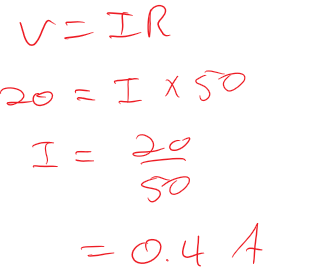 V = IR
20 = I × 50
I = 20/50
= 0.4 A